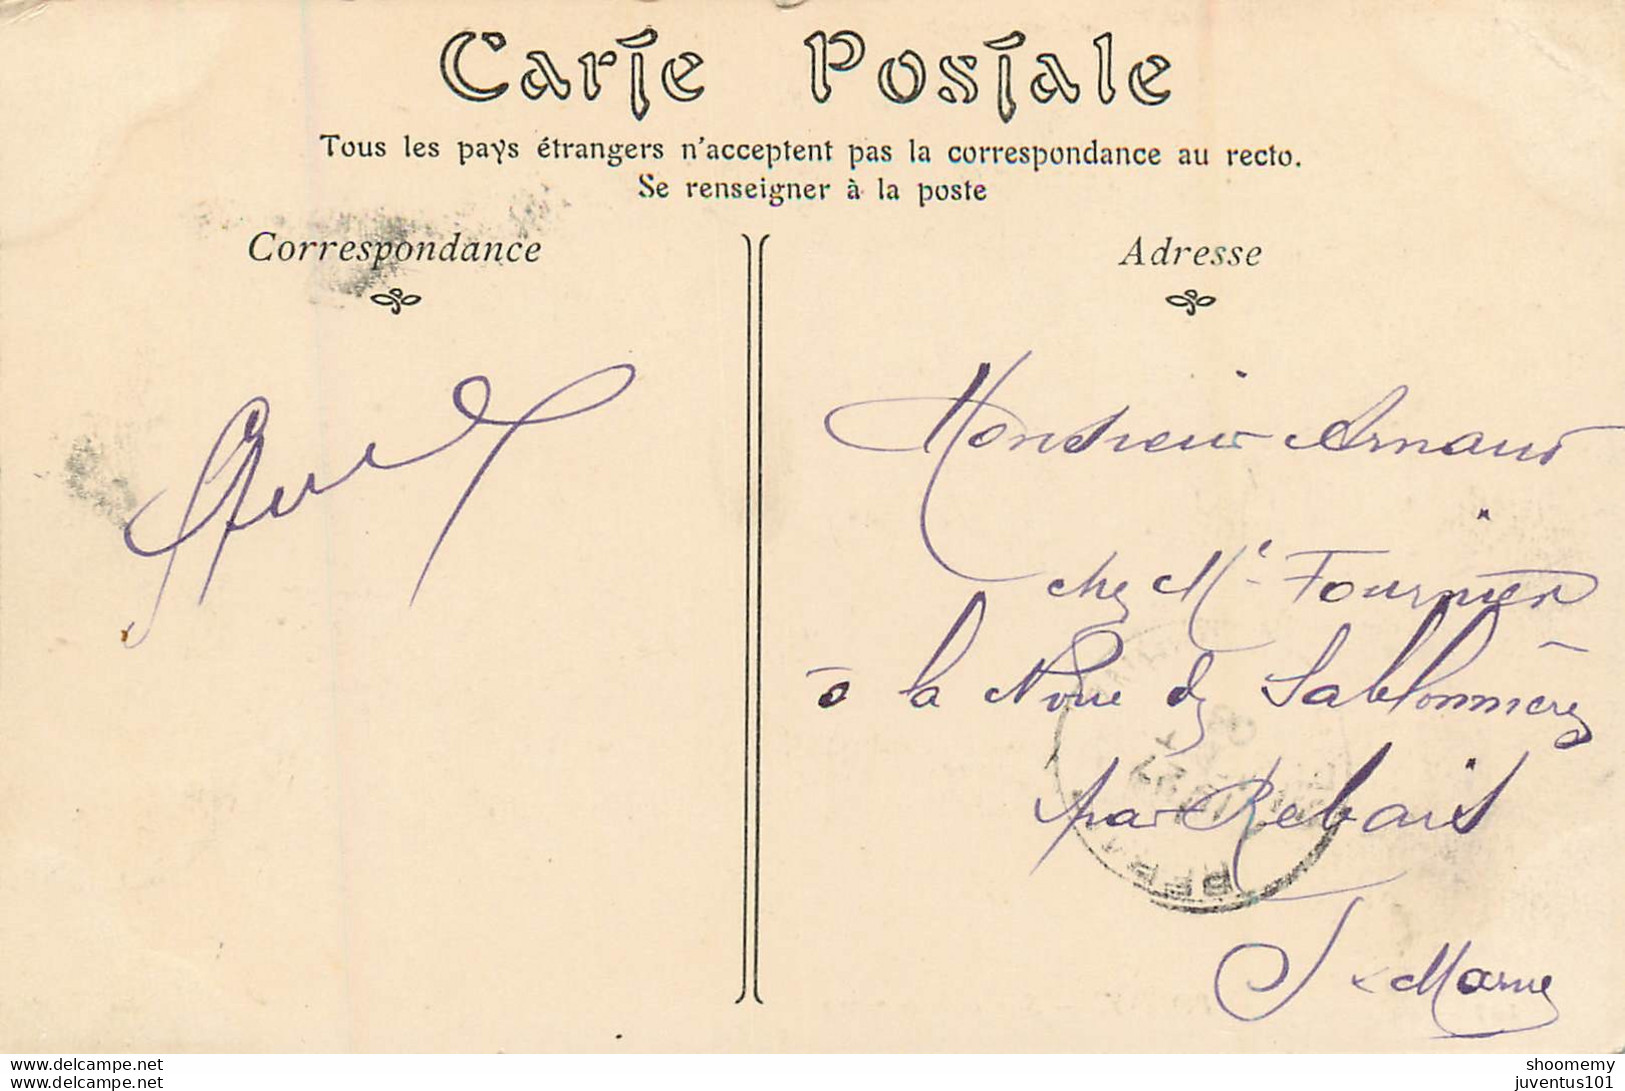 Carte Postale
Tous les pays étrangers n'acceptent pas la correspondance au recto.
Se renseigner à la poste
Correspondance
Adresse
Monsieur Arnaud
chez Mr Fournier
à la Noue des Sablonnières
par Rebais
S x Marne
delcampe.net
delcampe.net
shoomemy
juventus101